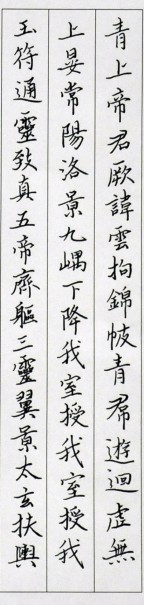 青上帝君厥諱雲拘錦帔青帬遊迴虛無
上晏常陽洛景九嵎下降我室授我室授我
玉符通靈致真五帝齊軀三靈翼景太玄扶輿